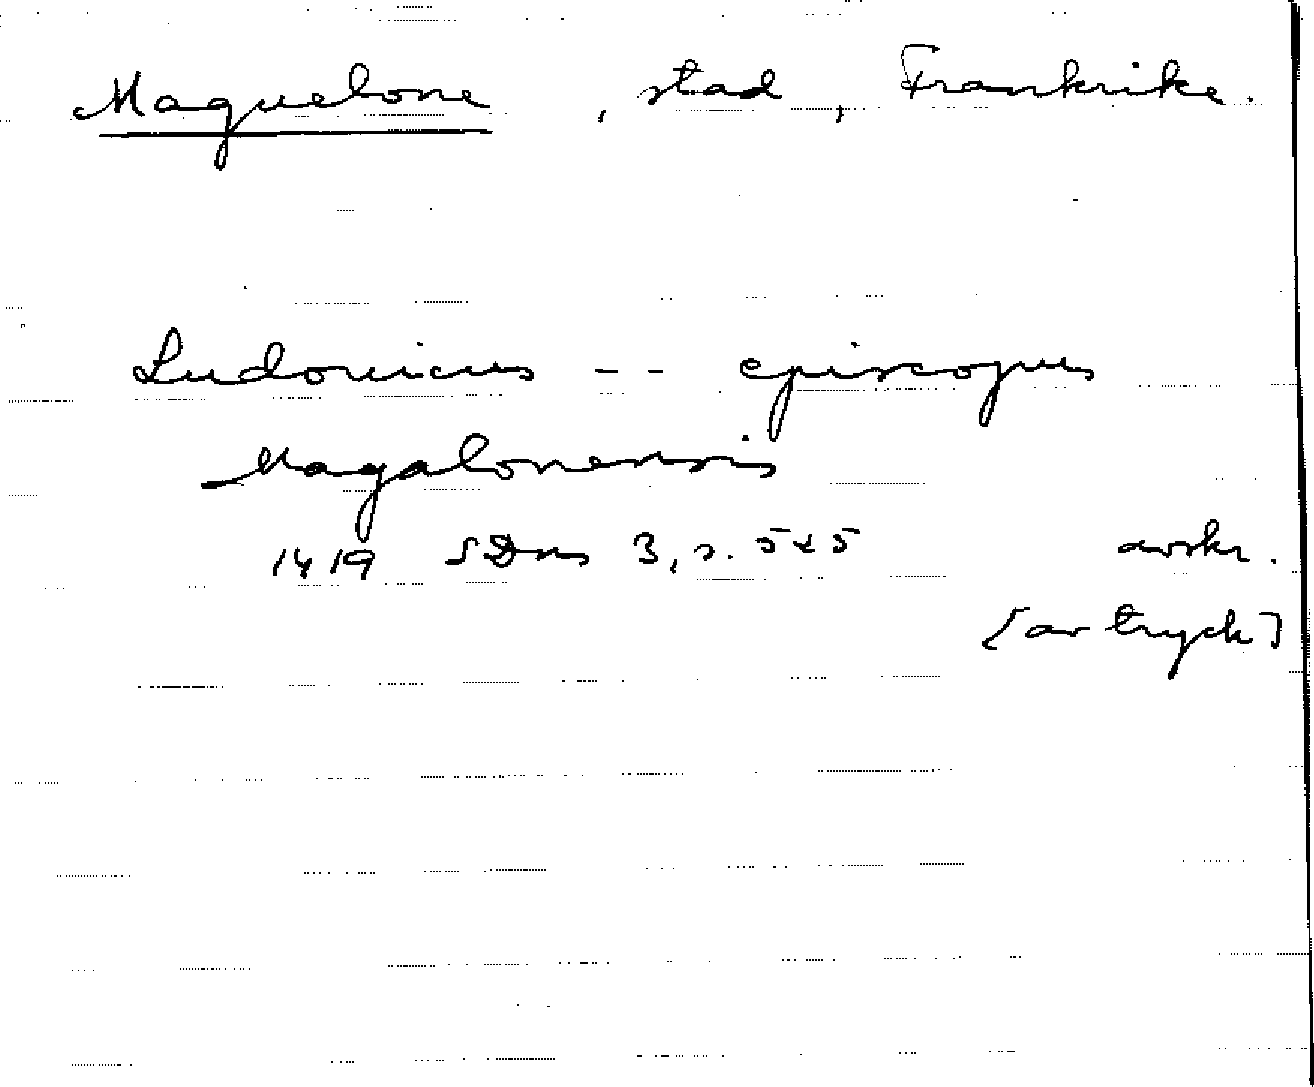 Maguelone, stad, Frankrike.
Ludouicus -- episcopus
Magalonensis
1419 SDns 3, s. 545 avskr.
[av tryck]